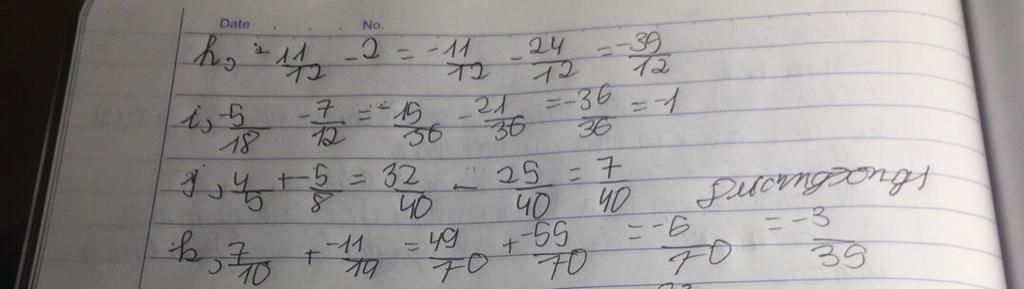 Date No.
h, -11/12 - 2 = -11/12 - 24/12 = -39/12
i, -5/18 - 7/12 = -15/36 - 21/36 = -36/36 = -1
j, 4/5 + -5/8 = 32/40 - 25/40 = 7/40
k, 7/10 + -11/14 = 49/70 + -55/70 = -6/70 = -3/35